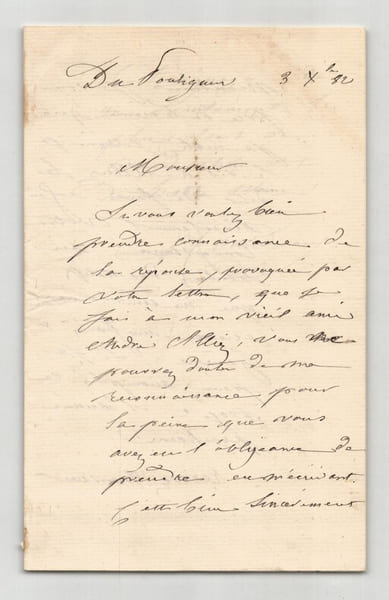 Du Pouliguen 3 Xbre 82
Monsieur
Si vous voulez bien
prendre connaissance de
la réponse, provoquée par
votre lettre, que je
fais à mon vieil ami
André Alliez, vous ne
pourrez douter de ma
reconnaissance pour
la peine que vous
avez eu l'obligeance de
prendre en m'écrivant.
C'est bien sincèrement